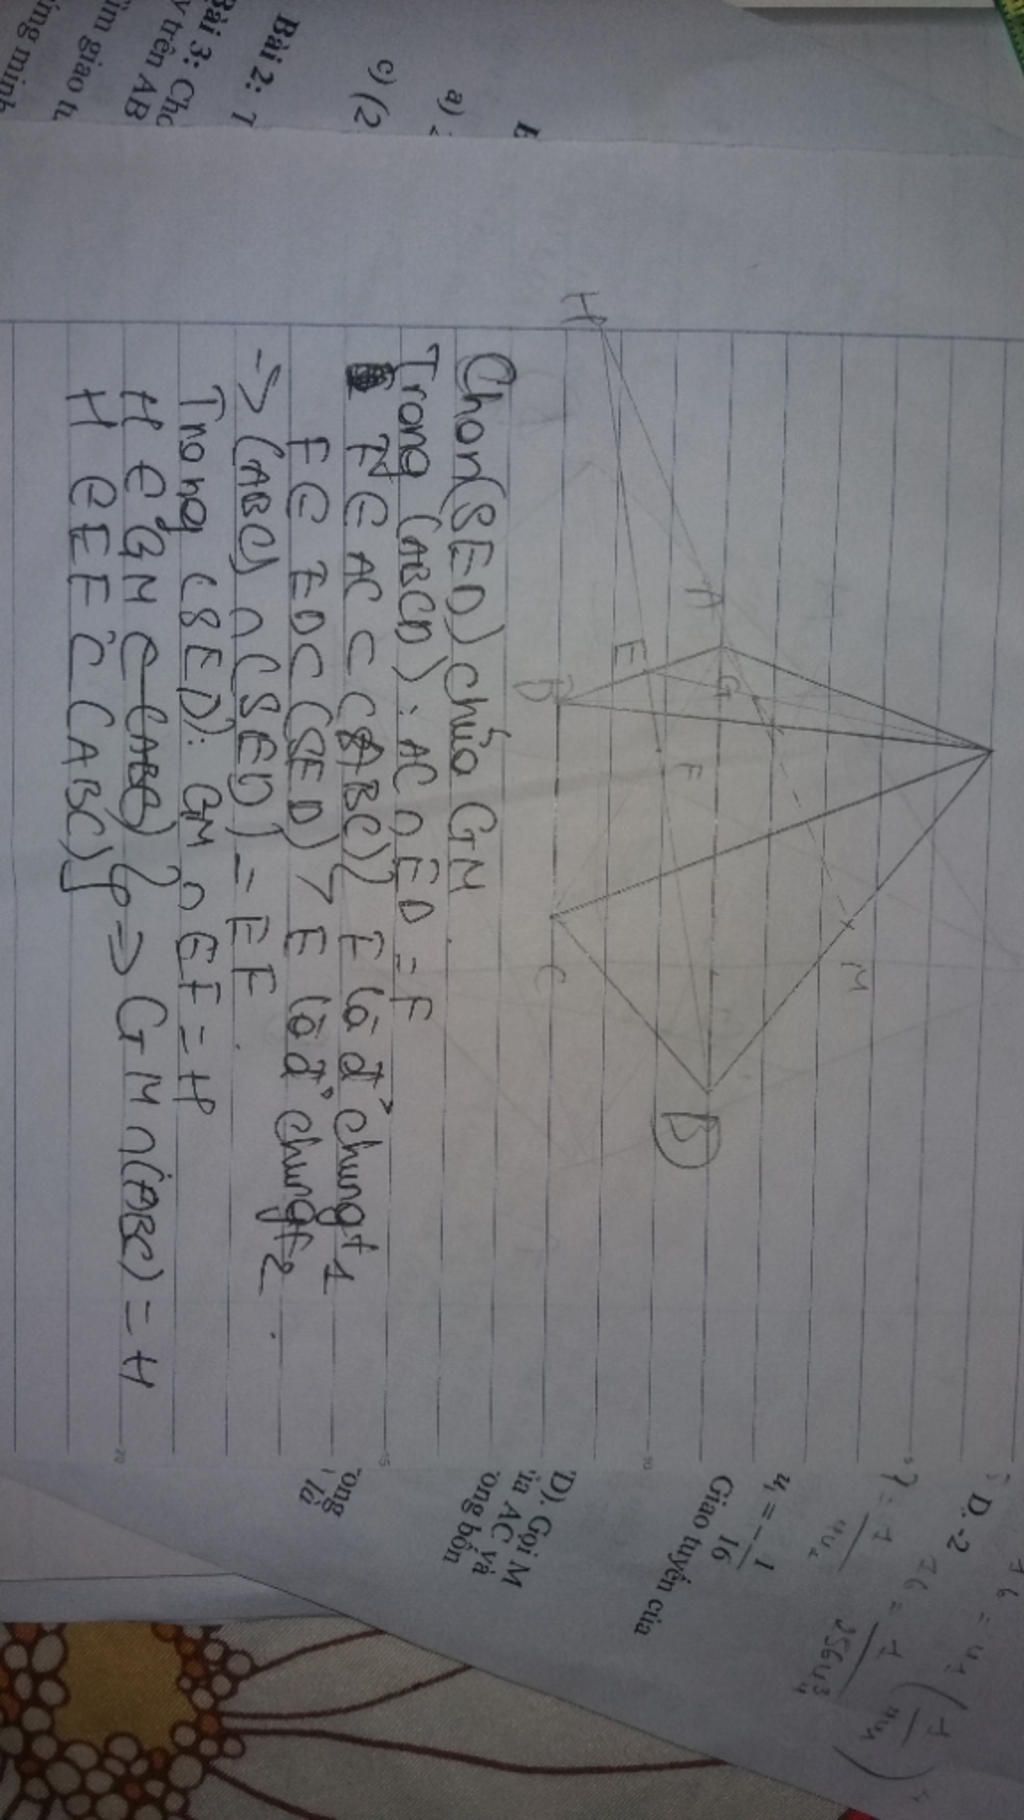 Bài 2: 1
Bài 3: Cho
y trên AB
ìm giao tu
ứng minh
a)
c) (2
H
A
E
D
G
F
M
C
B
Chọn (SED) chứa GM
Trong (ABCD): AC ∩ ED = F
F ∈ AC ⊂ (ABC)} F là đ² chung t1
E ∈ ED ⊂ (SED) > E là đ² chung t2.
-> (ABC) ∩ (SED) = EF.
Trong (SED): GM ∩ EF = H
H ∈ GM
H ∈ EF ⊂ (ABC)} => GM ∩ (ABC) = H
D. -2
u₁ = - 1/16
Giao tuyến của
D). Gọi M
ủa AC và
ong bốn
ong
là
5
10
15
20